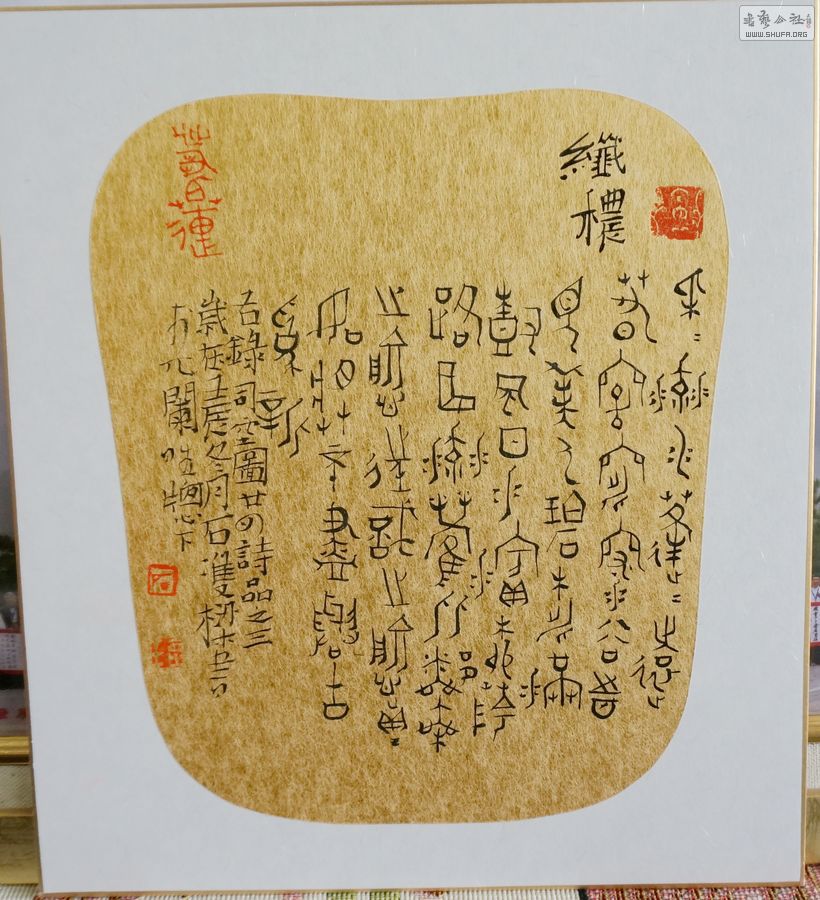 書藝公社
WWW.SHUFA.ORG
纖穠
采〻流水蓬〻遠
春窈窕深谷時
見美人碧桃滿
樹風日水濱柳陰
路曲流鶯比鄰乘
之愈往識之愈真
如將不盡與古
為新
右錄司空圖廿四詩品之三
歲在壬辰冬月石